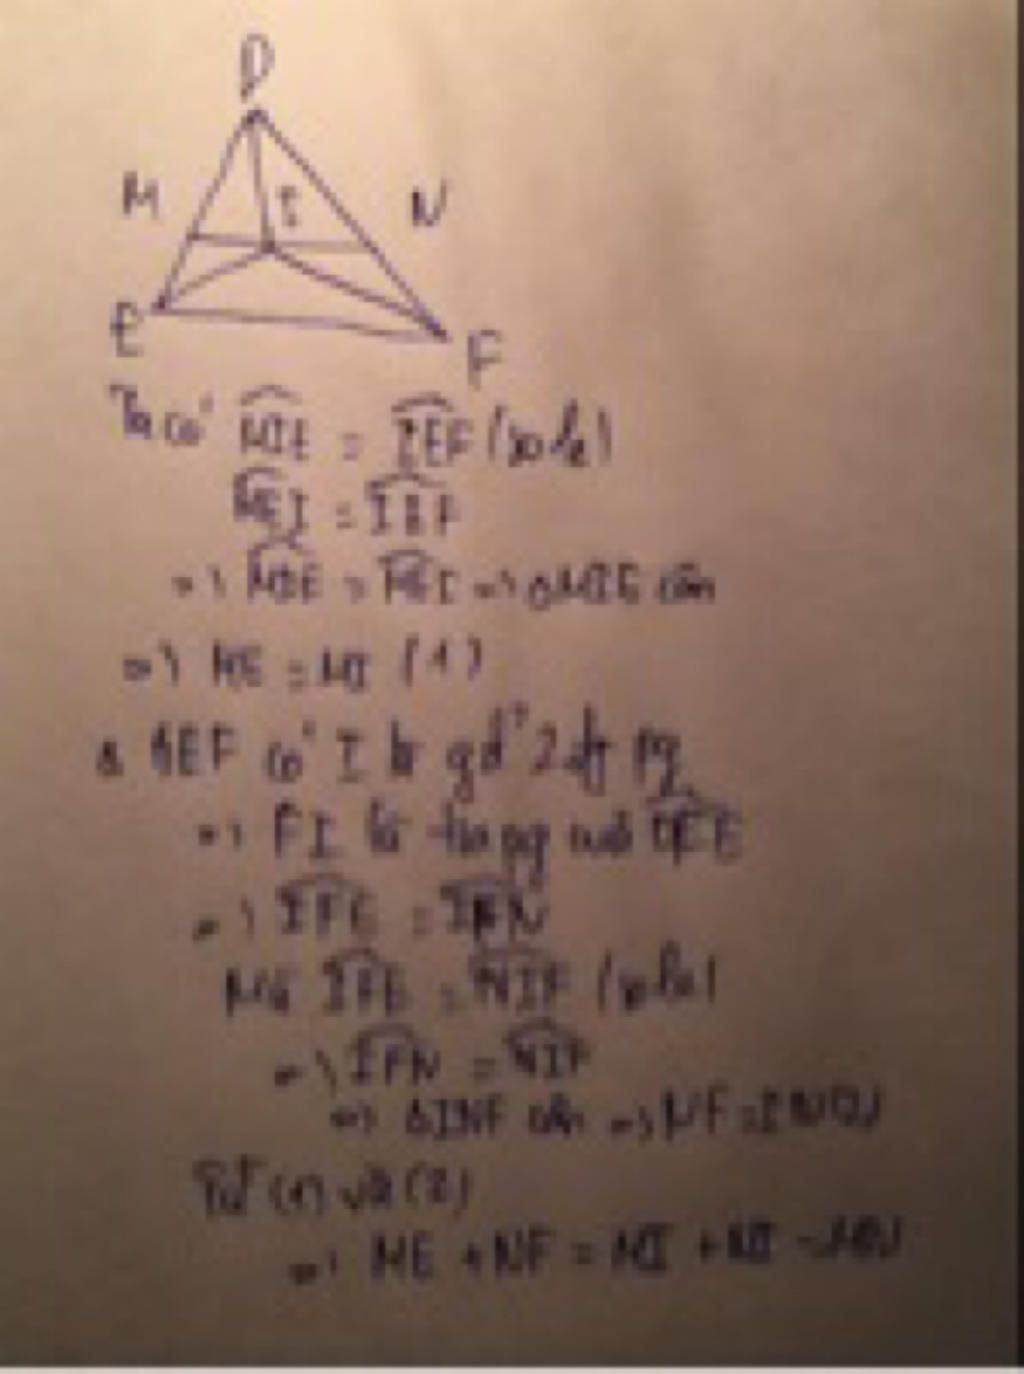 D
M I N
E
F
Ta có MIE = IEF (so le)
MEI = IEF
=> MIE = MEI => ΔMIE cân
=> ME = MI (1)
Δ DEF có I là gđ 2 đg pg
=> FI là tia pg của DFE
=> IFE = IFN
Mà IFE = NIF (so le)
=> IFN = NIF
=> ΔINF cân => NF = IN (2)
Từ (1) và (2)
=> ME + NF = MI + NI = MN